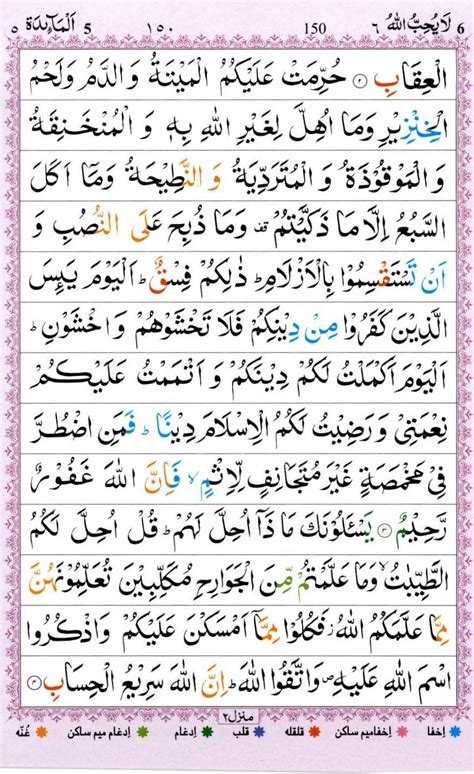 لَا يُحِبُّ اللّٰهُ ٦ 6 150 ١٥٠ 5 اَلْمَآئِدَة ٥
الْعِقَابِ ۞ حُرِّمَتْ عَلَيْكُمُ الْمَيْتَةُ وَالدَّمُ وَلَحْمُ
الْخِنْزِيْرِ وَمَآ اُهِلَّ لِغَيْرِ اللّٰهِ بِهٖ وَ الْمُنْخَنِقَةُ
وَ الْمَوْقُوْذَةُ وَ الْمُتَرَدِّيَةُ وَ النَّطِيْحَةُ وَمَآ اَكَلَ
السَّبُعُ اِلَّا مَا ذَكَّيْتُمْ ۫ وَمَا ذُبِحَ عَلَى النُّصُبِ وَ
اَنْ تَسْتَقْسِمُوْا بِالْاَزْلَامِ ؕ ذٰلِكُمْ فِسْقٌ ؕ اَلْيَوْمَ يَئِسَ
الَّذِيْنَ كَفَرُوْا مِنْ دِيْنِكُمْ فَلَا تَخْشَوْهُمْ وَ اخْشَوْنِ ؕ
اَلْيَوْمَ اَكْمَلْتُ لَكُمْ دِيْنَكُمْ وَ اَتْمَمْتُ عَلَيْكُمْ
نِعْمَتِيْ وَ رَضِيْتُ لَكُمُ الْاِسْلَامَ دِيْنًا ؕ فَمَنِ اضْطُرَّ
فِيْ مَخْمَصَةٍ غَيْرَ مُتَجَانِفٍ لِّاِثْمٍ ۙ فَاِنَّ اللّٰهَ غَفُوْرٌ
رَّحِيْمٌ ۞ يَسْئَلُوْنَكَ مَاذَآ اُحِلَّ لَهُمْ ؕ قُلْ اُحِلَّ لَكُمُ
الطَّيِّبٰتُ ۙ وَمَا عَلَّمْتُمْ مِّنَ الْجَوَارِحِ مُكَلِّبِيْنَ تُعَلِّمُوْنَهُنَّ
مِمَّا عَلَّمَكُمُ اللّٰهُ ؗ فَكُلُوْا مِمَّآ اَمْسَكْنَ عَلَيْكُمْ وَاذْكُرُوا
اسْمَ اللّٰهِ عَلَيْهِ ۪ وَاتَّقُوا اللّٰهَ ؕ اِنَّ اللّٰهَ سَرِيْعُ الْحِسَابِ ۞
منزل ٢
اخفا اخفامیم ساکن قلقله قلب ادغام ادغام میم ساکن غُنّه